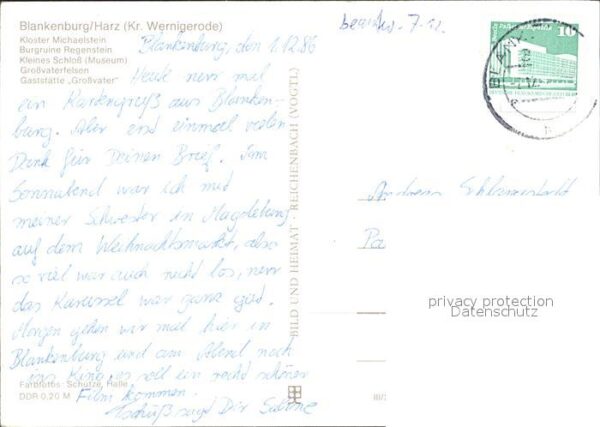 Blankenburg/Harz (Kr. Wernigerode)
Kloster Michaelstein
Burgruine Regenstein
Kleines Schloß (Museum)
Großvaterfelsen
Gaststätte „Großvater"
Blankenburg, den 1.12.86
Heute nun mal
ein Kartengruß aus Blanken-
burg. Aber erst einmal vielen
Dank für Deinen Brief. Am
Sonnabend war ich mit
meiner Schwester in Magdeburg
auf dem Weihnachtsmarkt, also
so viel war auch nicht los, nur
das Karussel war ganz gut.
Morgen gehen wir mal hier in
Blankenburg und am Abend noch
ins Kino, es soll ein recht schöner
Film kommen.
Tschüß sagt Dir Sabine
Farbfotos: Schütze, Halle
DDR 0,20 M
BILD UND HEIMAT REICHENBACH (VOGTL)
7.12.
10
BLANK
Andreas
Pa
privacy protection
Datenschutz
III/